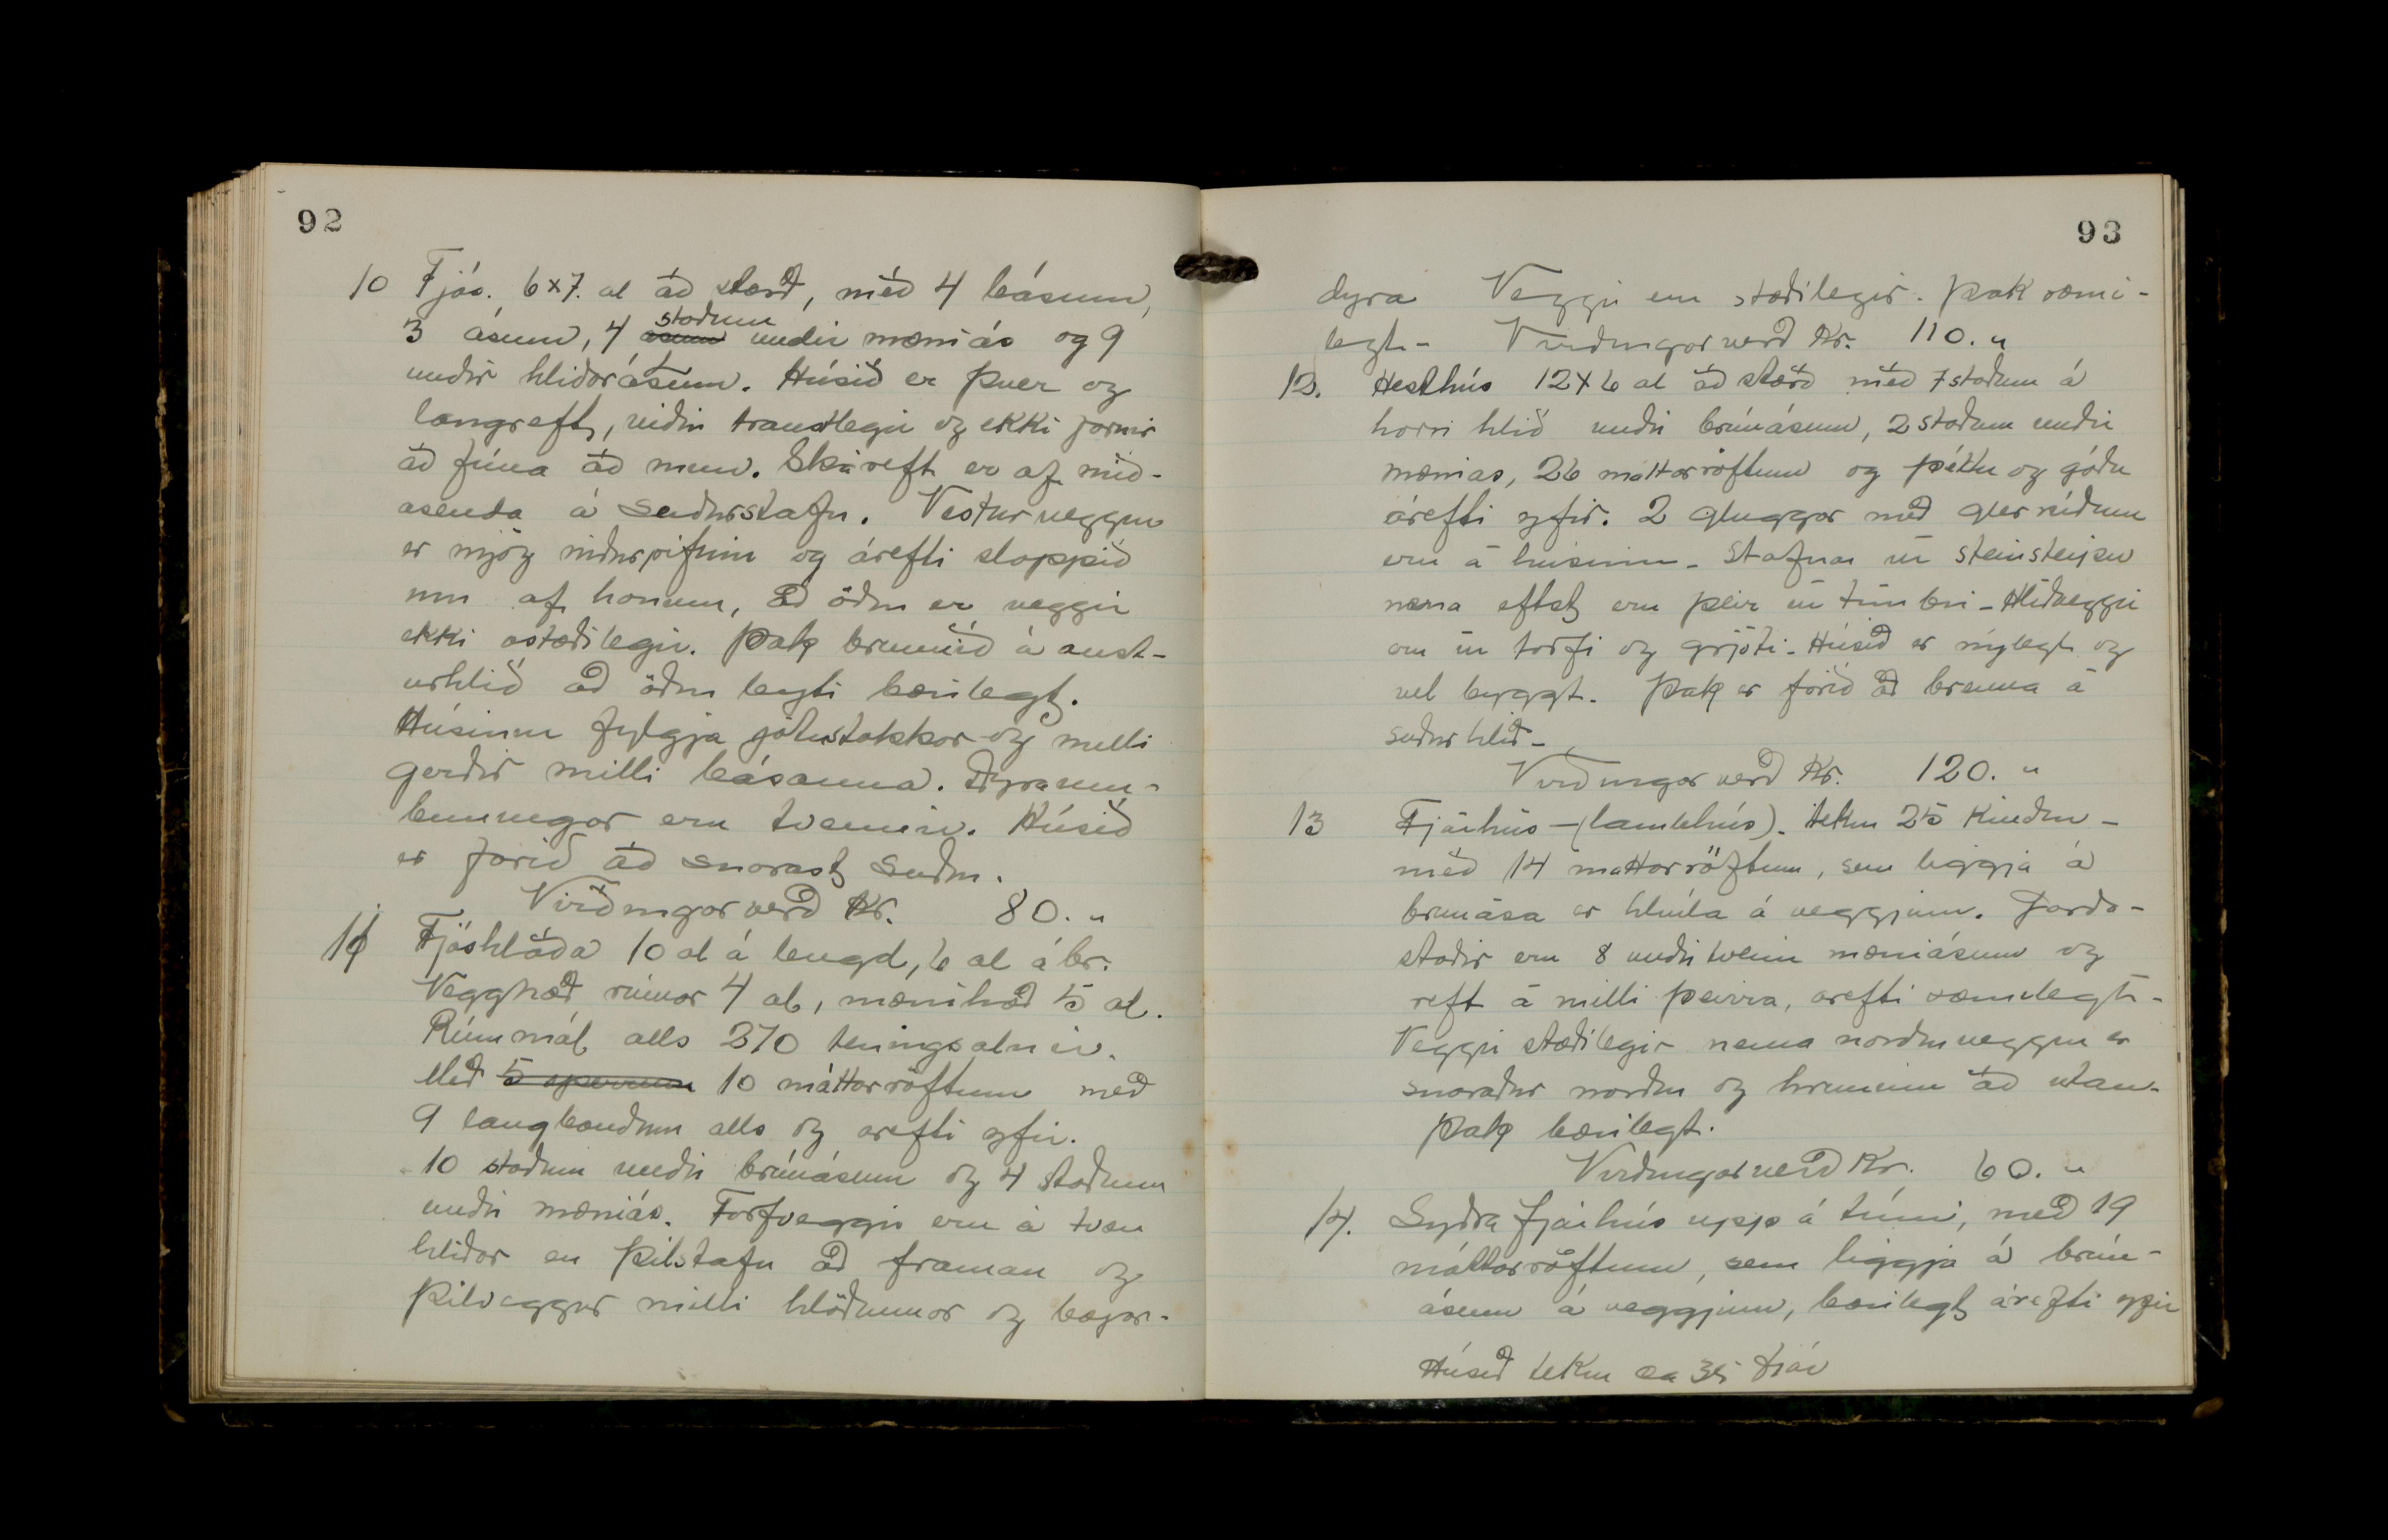 92
10 Fjós. 6x7. al að stærð, með 4 básum,
3 ásum, 4 stoðum undir mæniás og 9
undir hliðarásum. Húsið er þver og
langreft, viðir traustlegir og ekki farnir
að fúna að mun. Skáreft er af mið-
ásenda á suðurstafn. Vesturveggur
er mjög niðurrifinn og árefti sloppið
inn af honum, að öðru er veggir
ekki óstæðilegir. Þak brunnið á aust-
urhlið að öðru leyti bærilegt.
Húsinu fylgja jötustokkar og milli
gerðir milli básanna. Dyraum-
búningar eru tvennir. Húsið
er farið að snarast suður.
Virðingarverð Kr. 80. "
11 Fjóshlaða 10 al á lengd, 6 al á br.
Vegghæð rúmar 4 al, mænihæð 5 al.
Rúmmál alls 270 teningsalnir.
Með 5 sperrum 10 máttarröftum með
9 langböndum alls og árefti yfir.
10 stoðum undir brúnásum og 4 stoðum
undir mæniás. Torfveggir eru á tvær
hliðar en þilstafn að framan og
þilveggur milli hlöðunnar og bæjar-
93
dyra Veggir eru stæðilegir. Þak sæmi-
legt - Virðingarverð Kr. 110. "
12. Hesthús 12x6 al að stærð með 7 stoðum á
hvorri hlið undir brúnásum, 2 stoðum undir
mænias, 26 máttarröftum og þéttu og góðu
árefti yfir. 2 gluggar með glerrúðum
eru á húsinu - Stafnar úr steinsteypu
nema efst eru þeir úr timbri - Hliðveggir
eru úr torfi og grjóti - Húsið er nýlegt og
vel byggt. Þak er farið að brenna á
suðurhlið -
Virðingarverð Kr. 120. "
13 Fjárhús - (lambhús). tekur 25 kindur -
með 14 máttarröftum, sem liggja á
brúnása er hvíla á veggjum. Garða-
stoðir eru 8 undir tveim mæniásum og
reft á milli þeirra, árefti sæmilegt -
Veggir stæðilegir nema norðurveggur er
snaraður norður og hruninn að utan -
Þak bærilegt.
Virðingarverð Kr. 60. "
14. Syðra fjárhús upp á túni, með 19
máttarröftum, sem liggja á brún-
ásum á veggjum, bærilegt árefti yfir
Húsið tekur ca 35 fjár